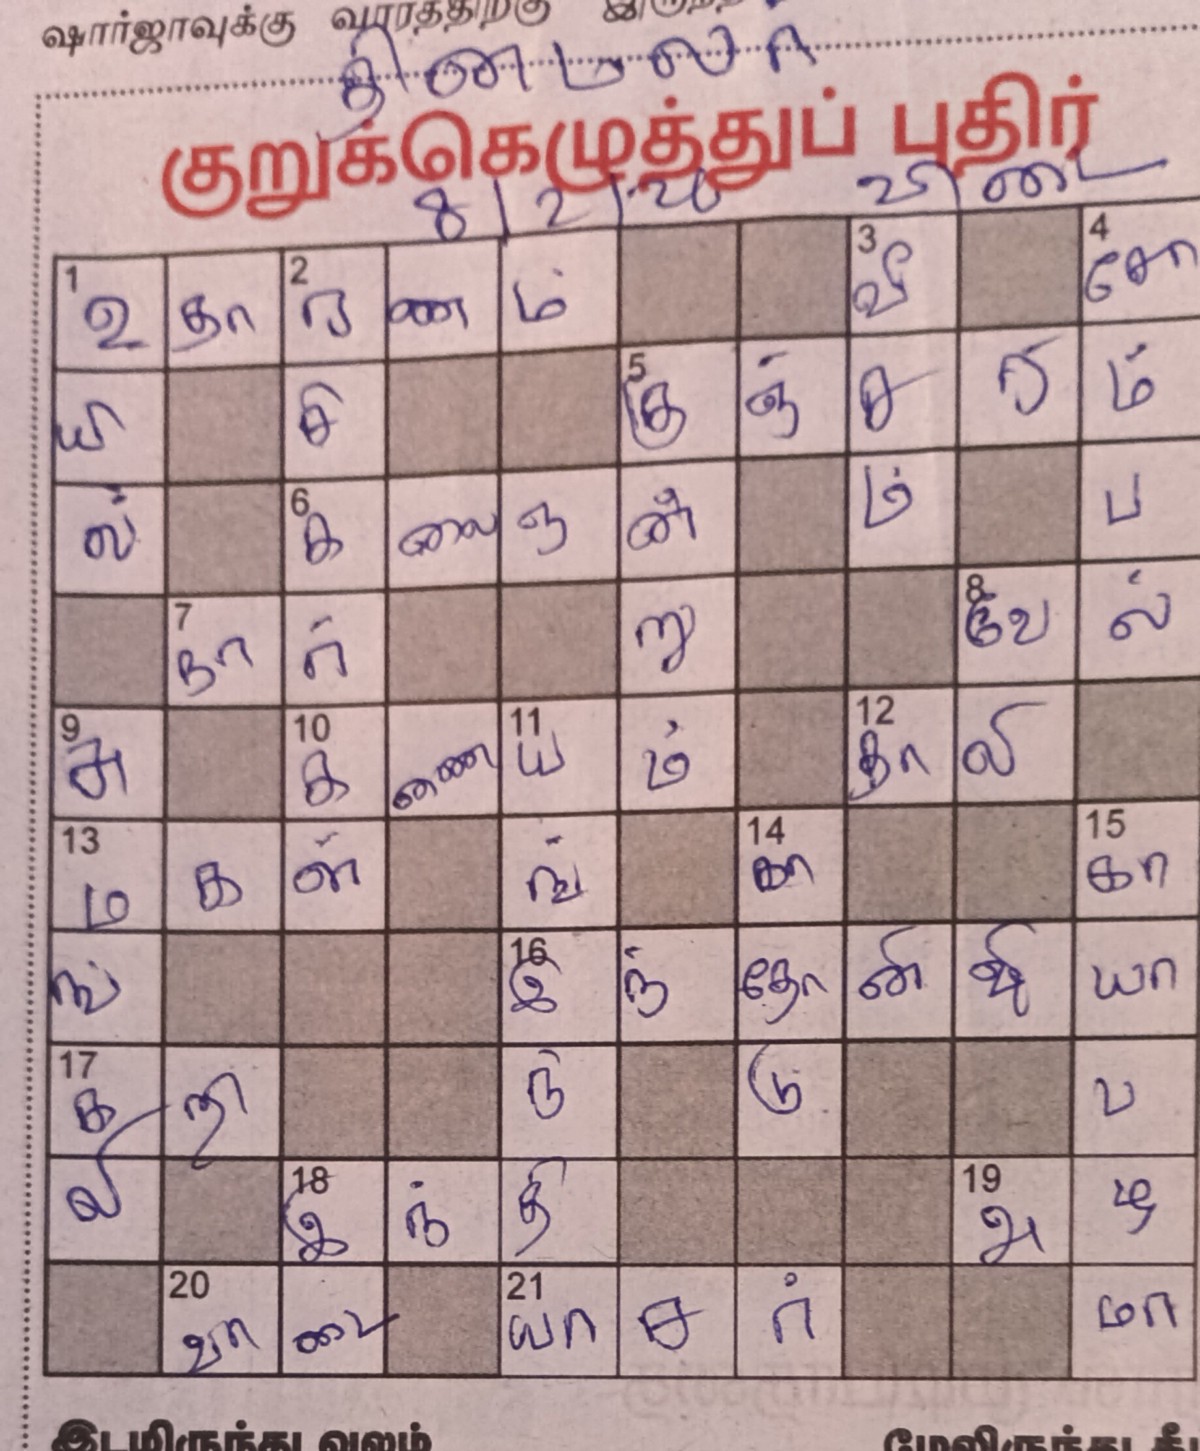 ஷார்ஜாவுக்கு வாரத்திற்கு
தினமலர்
குறுக்கெழுத்துப் புதிர்
8/2/26 விடை
1 உ தா 2 ர ண ம் 3 வீ 4 சோ
யி சி 5 கு ஞ் ச ரி ம்
ல் 6 க லை ஞ ன் ம் ப
7 நா ர் று 8 வே ல்
9 அ 10 க ணை 11 ய ம் 12 தா லி
13 ம க ள் ங் 14 கா 15 கா
ங் 16 இ ந் தோ னி ஷி யா
17 க றி டு ப
லி 18 இ ந் தி 19 அ ழ
20 வா வை 21 யா ச ர் மா
இடமிருந்து வலம்